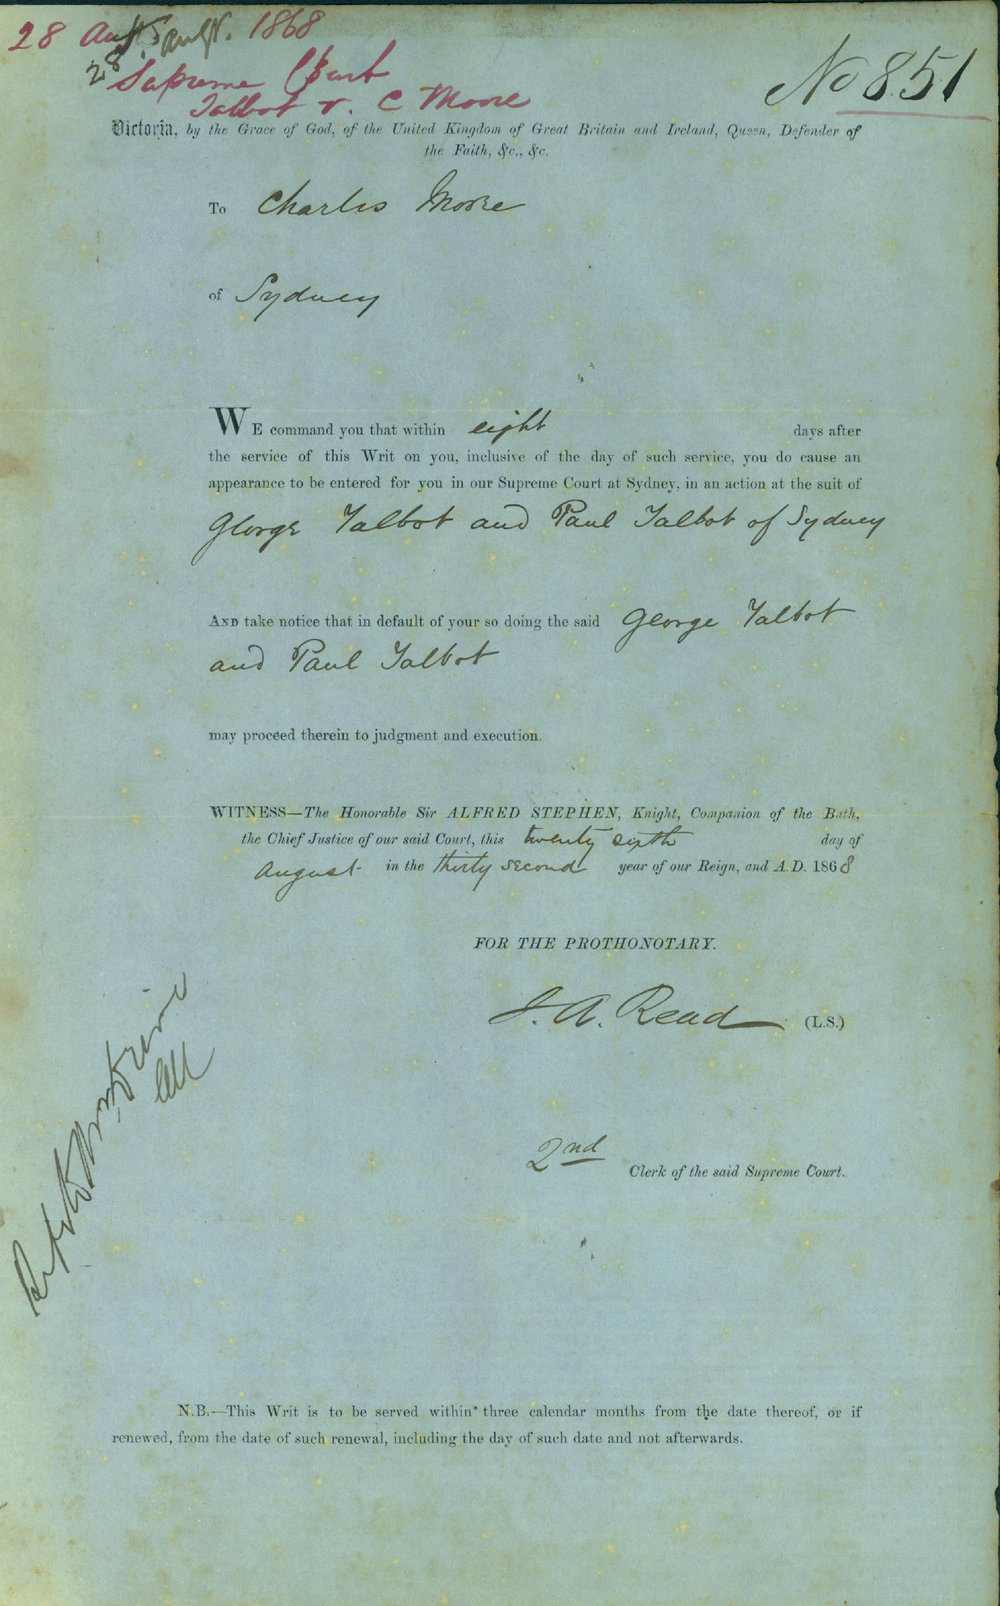 28 Augt. 1868
28. Augt.
Supreme Court
Talbot v. C Moore
No 851
Victoria, by the Grace of God, of the United Kingdom of Great Britain and Ireland, Queen, Defender of
the Faith, &c., &c.
To Charles Moore
of Sydney
WE command you that within eight days after
the service of this Writ on you, inclusive of the day of such service, you do cause an
appearance to be entered for you in our Supreme Court at Sydney, in an action at the suit of
George Talbot and Paul Talbot of Sydney
AND take notice that in default of your so doing the said George Talbot
and Paul Talbot
may proceed therein to judgment and execution.
WITNESS—The Honorable Sir ALFRED STEPHEN, Knight, Companion of the Bath,
the Chief Justice of our said Court, this twenty sixth day of
August in the thirty second year of our Reign, and A.D. 1868
FOR THE PROTHONOTARY.
J. A. Read (L.S.)
2nd Clerk of the said Supreme Court.
N.B.—This Writ is to be served within three calendar months from the date thereof, or if
renewed, from the date of such renewal, including the day of such date and not afterwards.